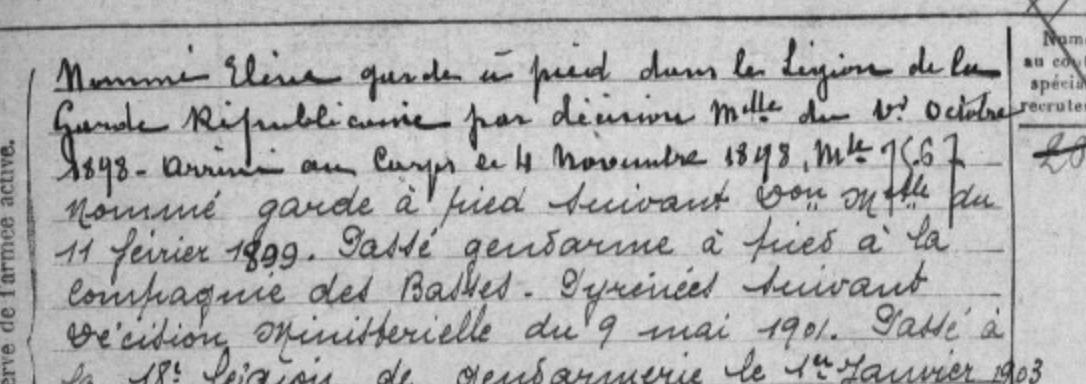 Nommé Elève garde à pied dans la Légion de la
Garde Républicaine par décision Mlle du 1er Octobre
1898 - Arrivé au Corps le 4 Novembre 1898, Mle 7567
Nommé garde à pied suivant Don Mlle du
11 février 1899. Passé gendarme à pied à la
Compagnie des Basses-Pyrénées suivant
Décision Ministérielle du 9 mai 1901. Passé à
la 18e Légion de gendarmerie le 1er Janvier 1903
Numé
au co
spécia
recrute
erve de l'armée active.